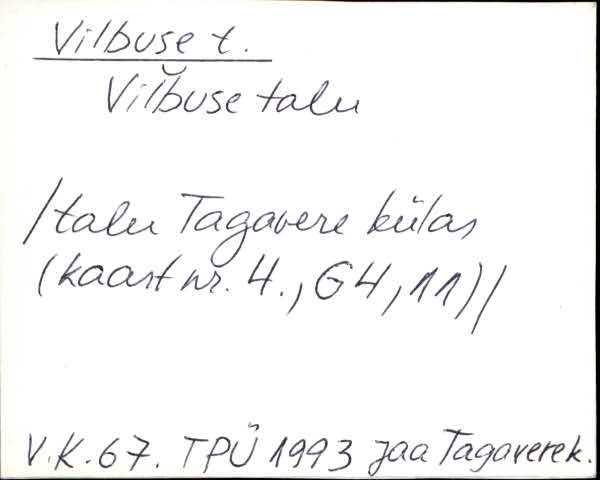 Vilbuse t.
Vilb̆use talu
/talu Tagavere külas
(kaart nr. 4., G4, 11)/
V.K.67. TPÜ 1993 Jaa Tagavere k.